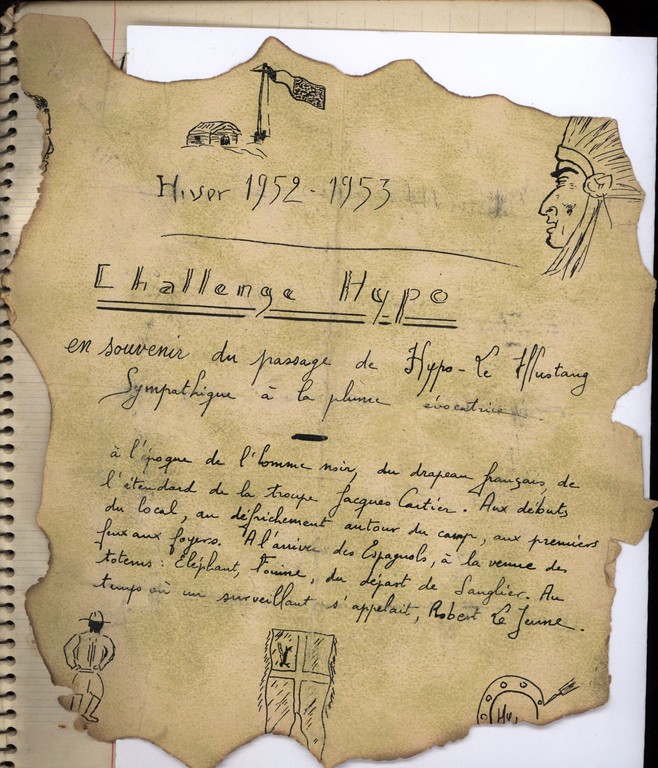 Hiver 1952-1953
Challenge Hypo
en souvenir du passage de Hypo-Le Mustang
Sympathique à la plume évocatrice
à l'époque de l'homme noir, du drapeau français, de
l'étendard de la troupe Jacques Cartier. Aux débuts
du local, au défrichement autour du camp, aux premiers
feux aux foyers. A l'arrivée des Espagnols, à la venue des
totems : Eléphant, Fouine, du départ de Sanglier. Au
temps où un surveillant s'appelait, Robert Le Jeune.